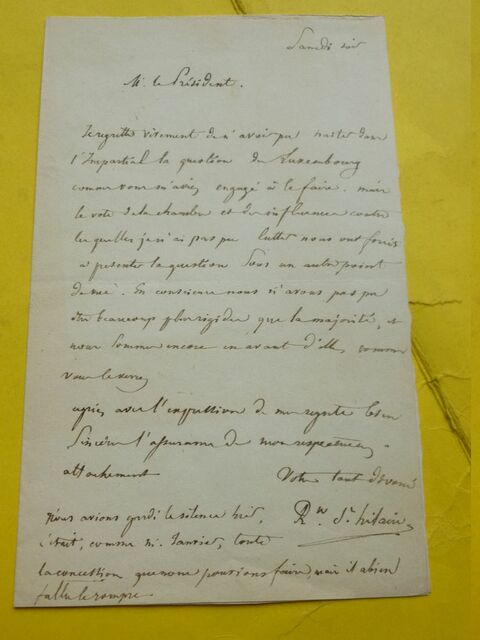 Samedi soir
Mr le Président.
Je regrette vivement de n'avoir pu traiter dans
l'Impartial la question du Luxembourg
comme vous m'aviez engagé à le faire. mais
le vote de la chambre et des influences contre
lesquelles je n'ai pas pu lutter nous ont forcés
à présenter la question sous un autre point
de vue. En conscience nous n'avons pas pu
être beaucoup plus rigides que la majorité, et
nous sommes encore en avant d'elle, comme
vous le verrez
agréez avec l'expression de mes regrets bien
sincères l'assurance de mon respectueux
attachement
Votre tout dévoué
Rey St hilaire
Nous avions gardé le silence hier,
c'était, comme M. Janvier, toute
la concession que nous pouvions faire, mais il a bien
fallu le rompre.